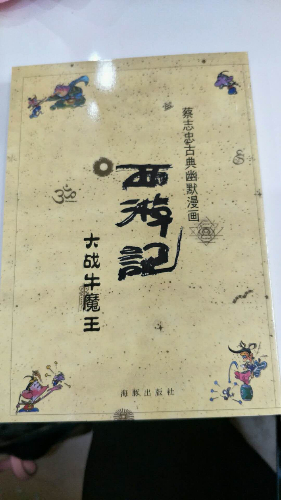 蔡志忠古典幽默漫画
西游記
大战牛魔王
海豚出版社